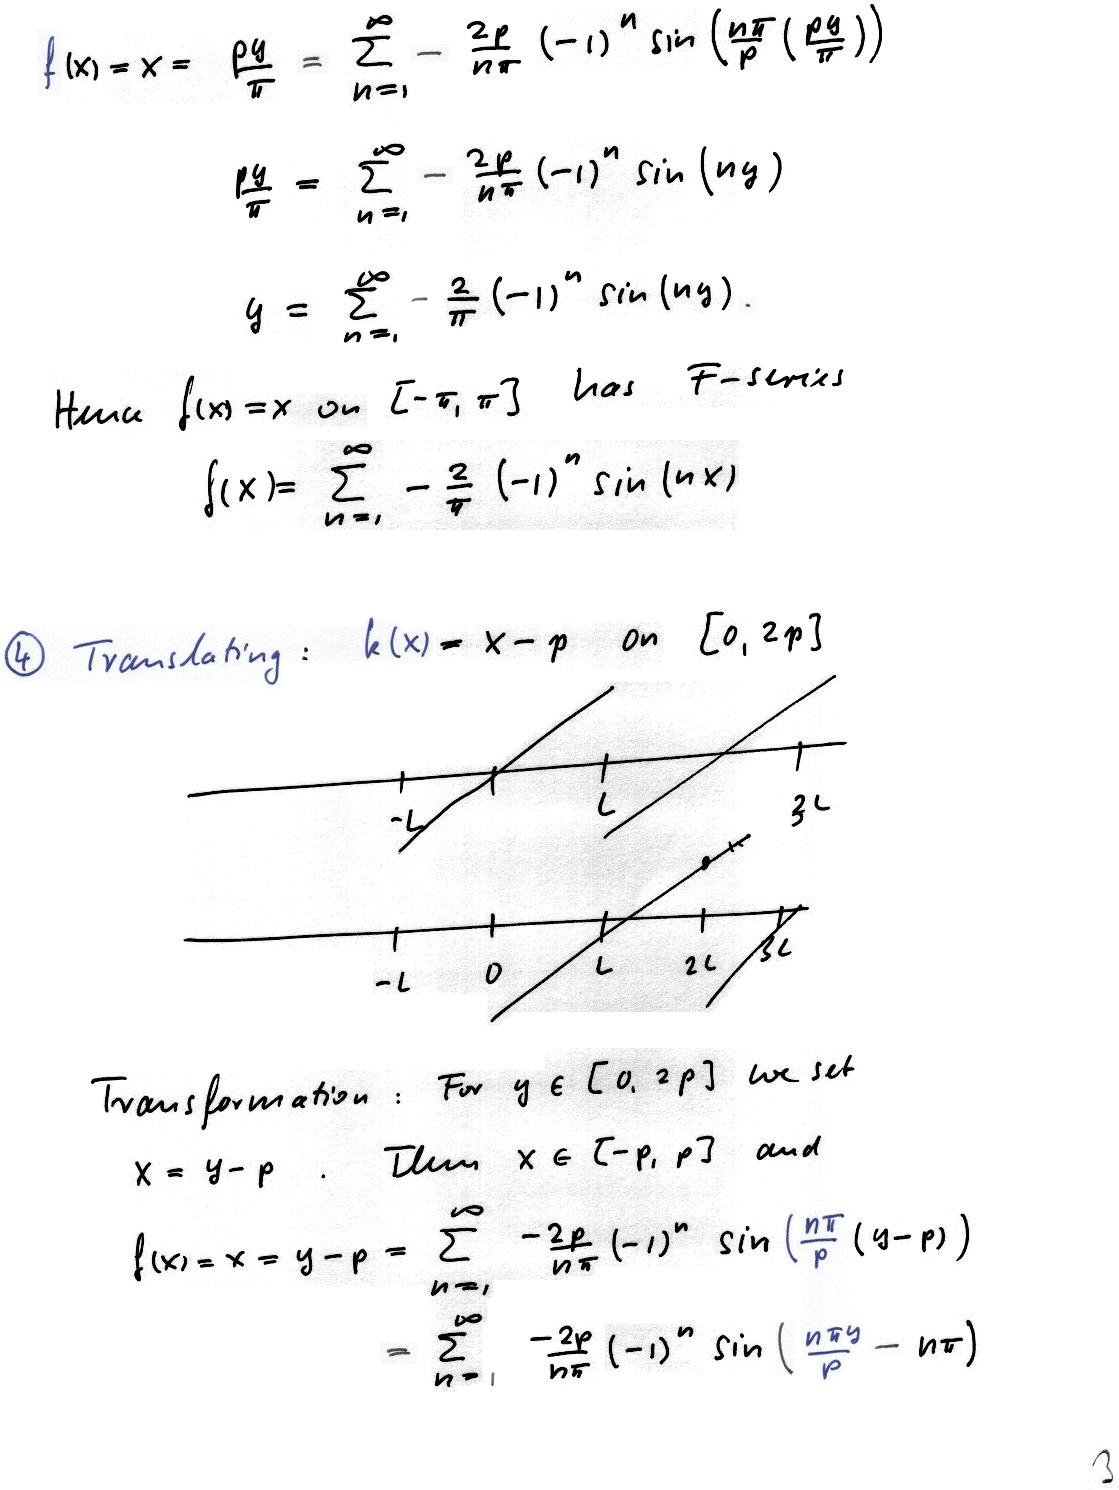 f(x) = x = py/π = ∑_{n=1}^{∞} - 2p/nπ (-1)^n sin (nπ/p (py/π))
py/π = ∑_{n=1}^{∞} - 2p/nπ (-1)^n sin (ny)
y = ∑_{n=1}^{∞} - 2/π (-1)^n sin (ny).
Hence f(x) = x on [-π, π] has F-series
f(x) = ∑_{n=1}^{∞} - 2/π (-1)^n sin (nx)
④ Translating: k(x) = x - p on [0, 2p]
-L L 3L
-L 0 L 2L 3L
Transformation: For y ∈ [0, 2p] we set
x = y - p. Then x ∈ [-p, p] and
f(x) = x = y - p = ∑_{n=1}^{∞} -2p/nπ (-1)^n sin (nπ/p (y-p))
= ∑_{n=1}^{∞} -2p/nπ (-1)^n sin (nπy/p - nπ)
3